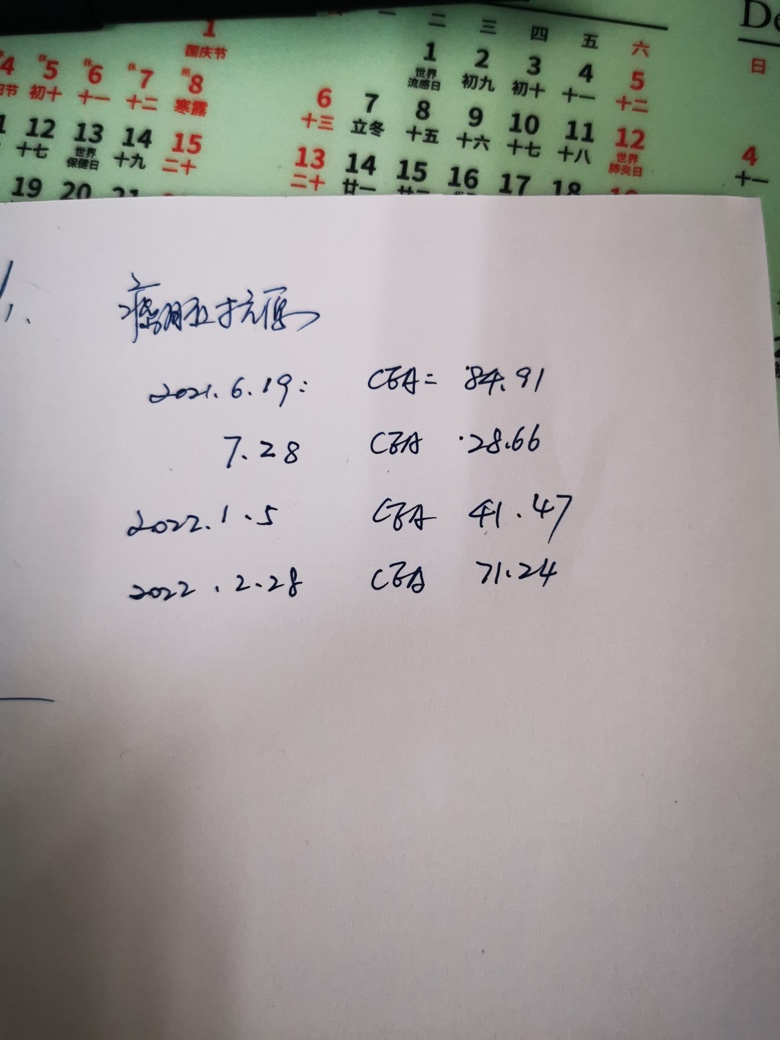 1
国庆节
一 二 三 四 五 六
De
日
4 休5 休6 休7 班8
初十 十一 十二 寒露
1 2 3 4 5
世界流感日 初九 初十 十一 十二
6 7 8 9 10 11 12
十三 立冬 十五 十六 十七 十八 世界肺炎日
12 13 14 15
十七 世界保健日 十九 二十
13 14 15 16 17 18
二十 廿一
4
十一
19 20 21
1、
癌胚抗原
2021.6.19: CEA= 84.91
7.28 CEA 28.66
2022.1.5 CEA 41.47
2022.2.28 CEA 71.24